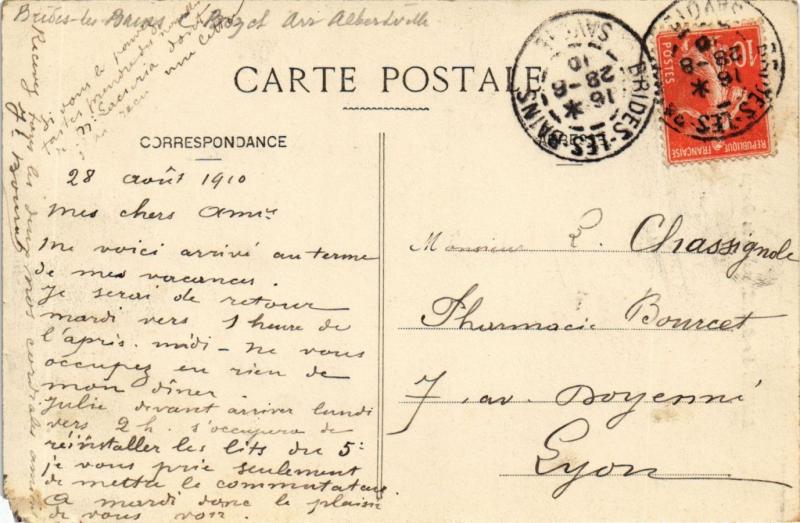 Brides-les Bains C. Bozel Arr Albertville
CARTE POSTALE
CORRESPONDANCE
28 août 1910
Mes chers Amis
Me voici arrivé au terme
de mes vacances.
Je serai de retour
mardi vers 1 heure de
l'après-midi - ne vous
occupez en rien de
mon dîner.
Julie devant arriver lundi
vers 2 h. s'occupera de
réinstaller les lits du 5e
je vous prie seulement
de mettre le commutateur.
A mardi donc le plaisir
de vous voir.
Recevez tous les deux mes cordiales
Si vous le pouvez
prendre des nouvelles
de
reçu une
Monsieur L. Chassignole
Pharmacie Bourcet
7, av. Doyenné
Lyon
BRIDES-LES-BAINS
SAVOIE
16
28-8
10
BRIDES-LES-BAINS
16
28-8
10
10
POSTES
REPUBLIQUE FRANÇAISE